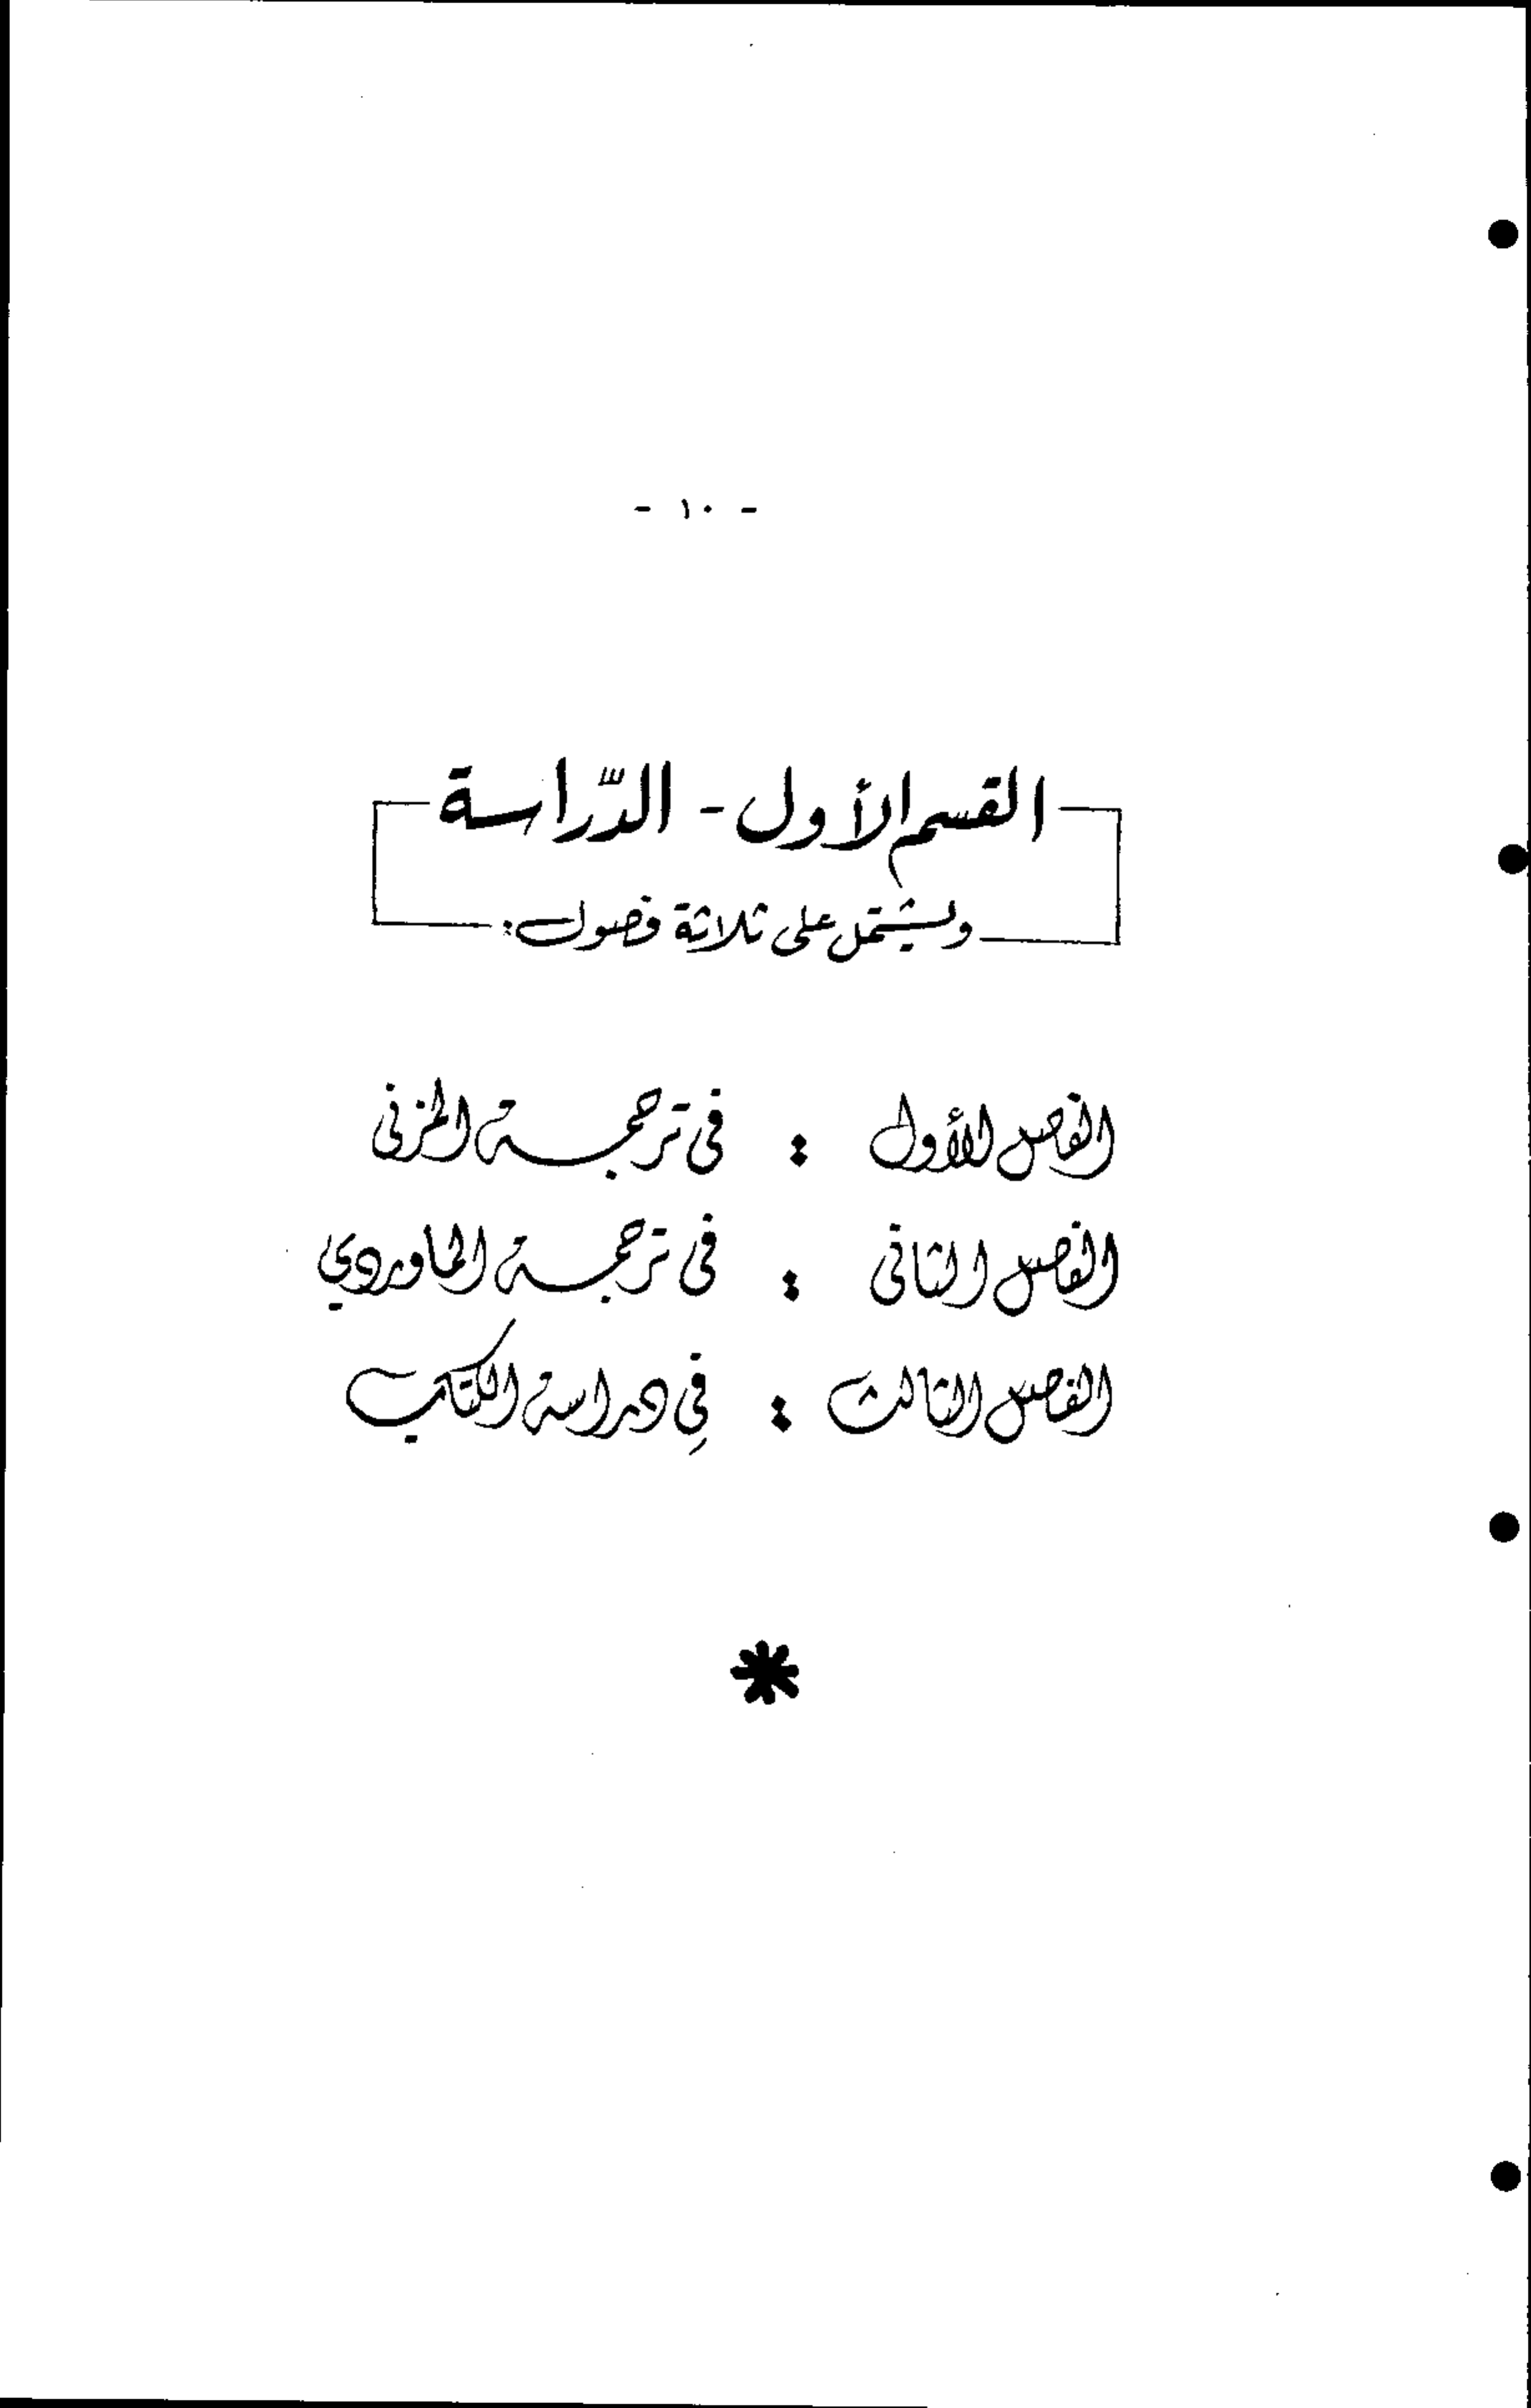 - ١٠ -
القسم الأول - الدّراسة
ويشتمل على ثلاثة فصول:
الفصل الأول : في ترجمة المزني
الفصل الثاني : في ترجمة الماوردي
الفصل الثالث : في دراسة الكتاب
*